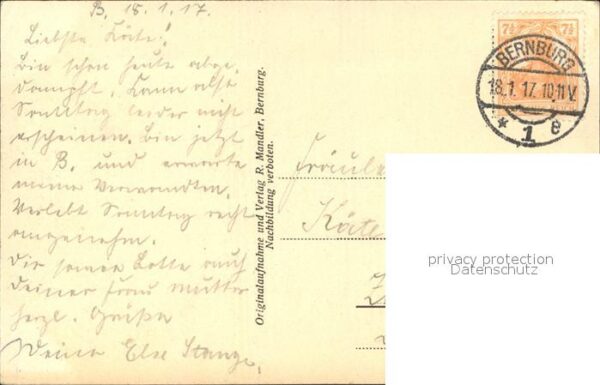 B. 18.1.17.
Liebste Käte!
Bin schon heute abge-
dampft. Kann also
Sonntag leider nicht
erscheinen. Bin jetzt
in B. und erwarte
meine Verwandten.
Verlebt Sonntag recht
angenehm.
Dir sowie Lotte auch
Deiner Frau Mutter
herzl. Grüße
Deine Else Stange.
Originalaufnahme und Verlag R. Mandler, Bernburg.
Nachbildung verboten.
7½ 7½
BERNBURG
18.1.17.10-11V.
* 1 e
Fräulein
Käte
privacy protection
Datenschutz